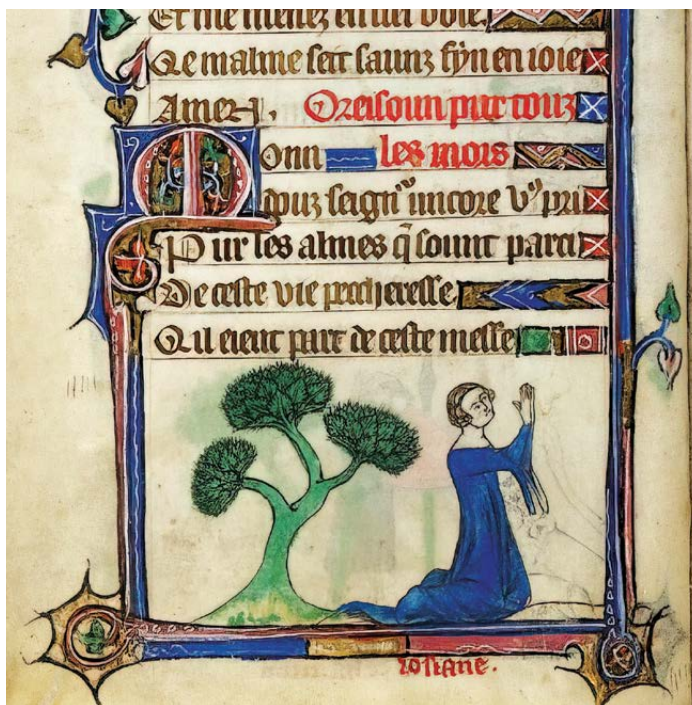 Et me menez en tiel voie.
Qe malme seit saunz fyn en ioie
Amen. Oreisoun pur touz
Monn les mors
douz seignͬ uncore vꝰ pri
Pur les almes q̃ sount parti
De ceste vie peccheresse
Qil eient part de ceste messe
iosiane.